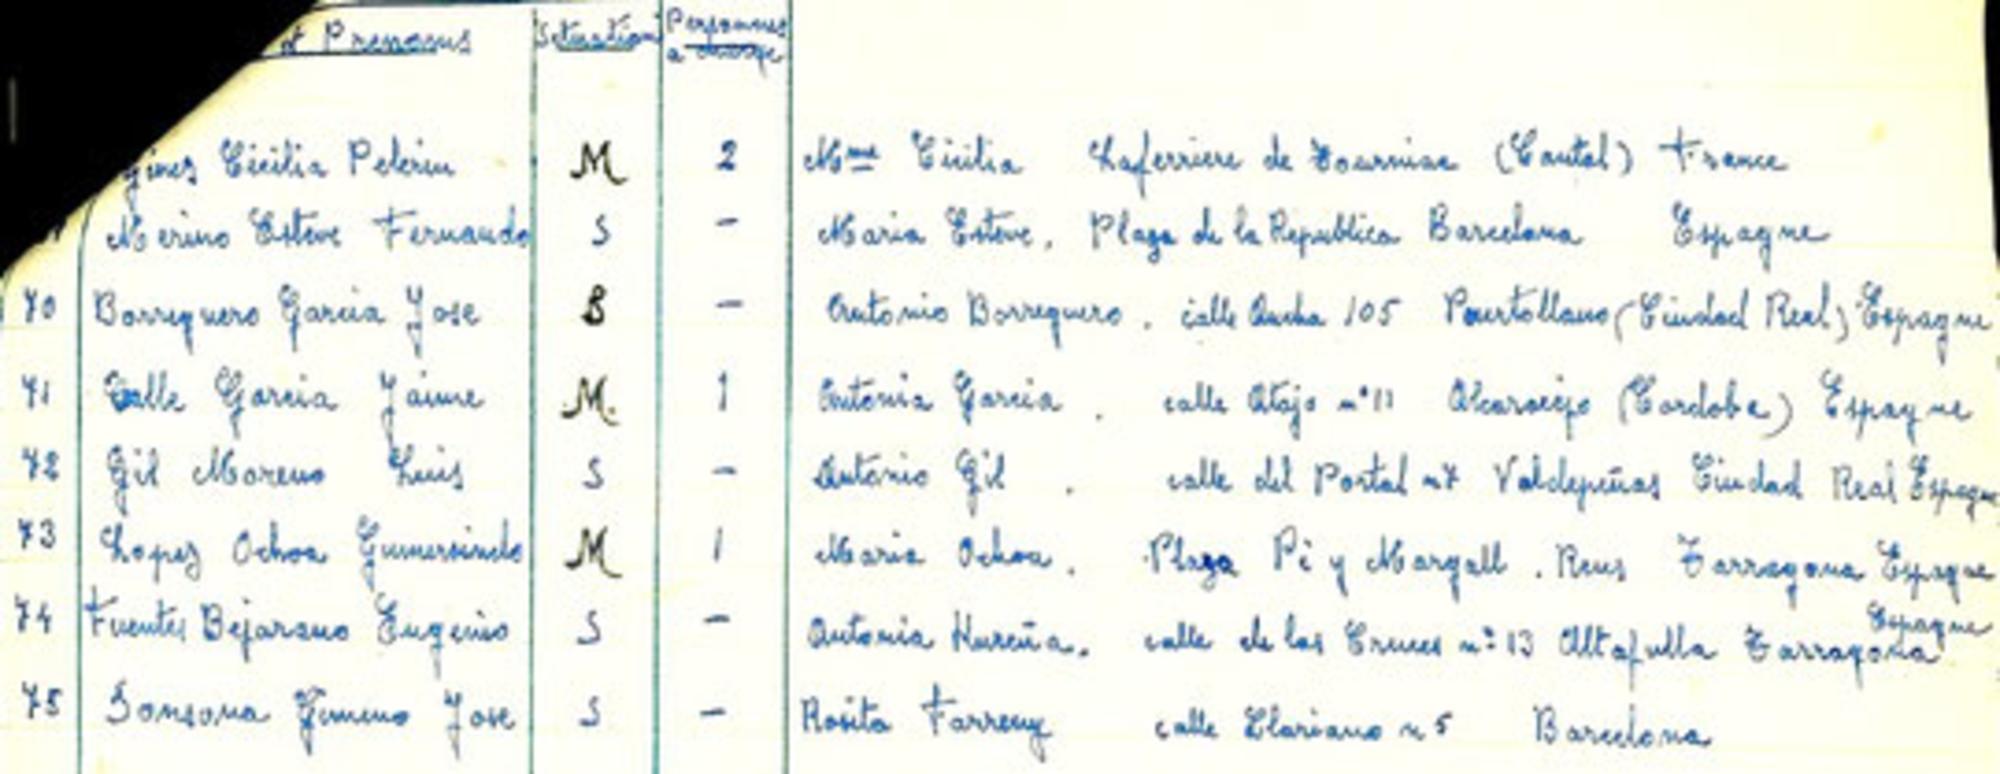 et Prenoms Situation Personnes a charge
Cicilia Pelerin M 2 Mme Cicilia Laferriere de (Cantal) France
Merino Esteve Fernando S - Maria Esteve. Plaza de la Republica Barcelona Espagne
70 Borreguero Garcia Jose B - Antonio Borreguero. calle Ancha 105 Puertollano (Ciudad Real) Espagne
71 Calle Garcia Jaime M. 1 Antonia Garcia. calle Atajo n° 11 Alcaracejo (Cordoba) Espagne
72 Gil Moreno Luis S - Antonio Gil. calle del Portal n 7 Valdepeñas Ciudad Real Espagne
73 Lopez Ochoa Gumersindo M 1 Maria Ochoa. Plaza Pi y Margall. Reus Tarragona Espagne
74 Fuentes Bejarano Eugenio S - Antonia calle de las Cruces n° 13 Altafulla Tarragona Espagne
75 Sonsona Gimeno Jose S - Rosita Farreny calle n 5 Barcelona